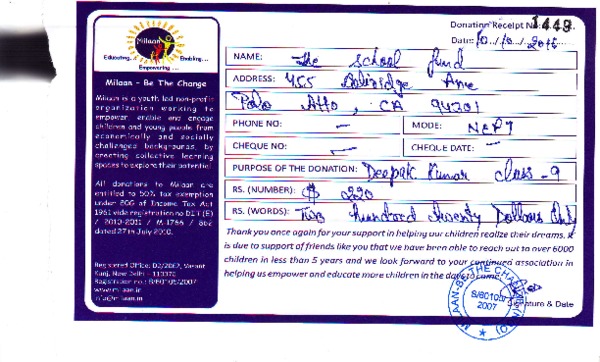 Donation Receipt No. 1449
Date: 10/10/2016
Milaan
Educating... Enabling...
Empowering ...
Milaan - Be The Change
Milaan is a youth led non-profit
organization working to
empower, enable and engage
children and young people from
economically and socially
challenged backgrounds, by
creating collective learning
spaces to explore their potential
All donations to Milaan are
entitled to 50% tax exemption
under 80G of Income Tax Act
1961 vide registration no DIT (E)
/ 2010-2011 /
dated 27th July 2010.
Registered Office: Vasant
Kunj, New Delhi -
Registration no.: S/60105/2007
www.milaan.in
info@milaan.in
NAME: The school fund
ADDRESS: 455 Ave
Palo Alto, CA 94301
PHONE NO: — MODE: NEFT
CHEQUE NO: — CHEQUE DATE: —
PURPOSE OF THE DONATION: Deepak Kumar class-9
RS. (NUMBER): $
RS. (WORDS): Two hundred Dollars Only
Thank you once again for your support in helping our children realize their dreams. It
is due to support of friends like you that we have been able to reach out to over 6000
children in less than 5 years and we look forward to your continued association in
helping us empower and educate more children in the days to come.
MILAAN-BE THE CHANGE (NGO)
S/60105/
2007
Signature & Date